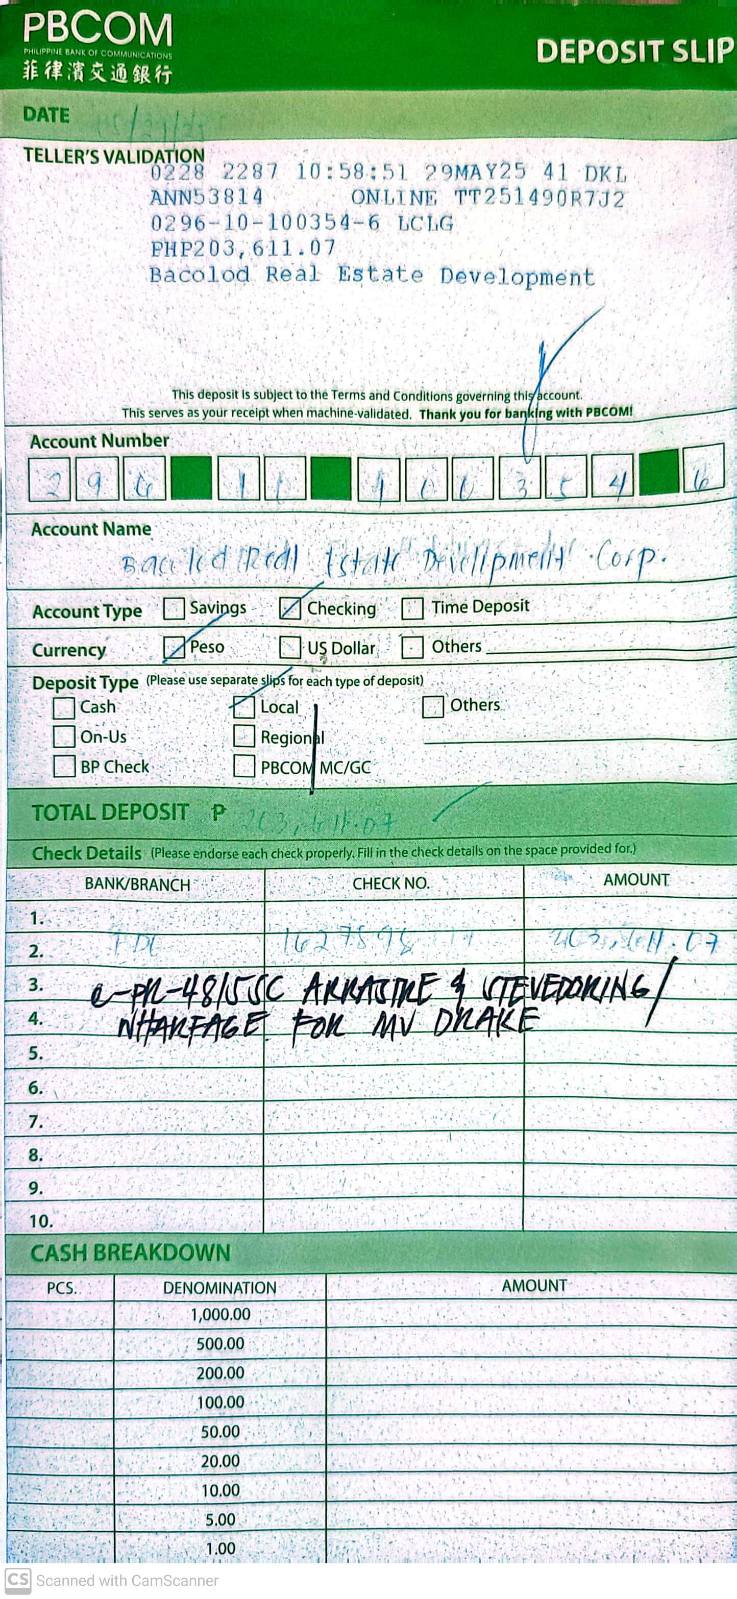 PBCOM
PHILIPPINE BANK OF COMMUNICATIONS
菲律濱交通銀行
DEPOSIT SLIP
DATE
TELLER'S VALIDATION
0228 2287 10:58:51 29MAY25 41 DKL
ANN53814 ONLINE TT251490R7J2
0296-10-100354-6 LCLG
PHP203,611.07
Bacolod Real Estate Development
This deposit is subject to the Terms and Conditions governing this account.
This serves as your receipt when machine-validated. Thank you for banking with PBCOM!
Account Number
296 10 100354 6
Account Name
Bacolod Real Estate Development Corp.
Account Type Savings Checking Time Deposit
Currency Peso US Dollar Others
Deposit Type (Please use separate slips for each type of deposit)
Cash Local Others
On-Us Regional
BP Check PBCOM MC/GC
TOTAL DEPOSIT P 203,611.07
Check Details (Please endorse each check properly. Fill in the check details on the space provided for.)
BANK/BRANCH CHECK NO. AMOUNT
1.
2. 203,611.07
3. ARRASTRE & STEVEDORING/
4. WHARFAGE FOR MV DRAKE
5.
6.
7.
8.
9.
10.
CASH BREAKDOWN
PCS. DENOMINATION AMOUNT
1,000.00
500.00
200.00
100.00
50.00
20.00
10.00
5.00
1.00
CS Scanned with CamScanner